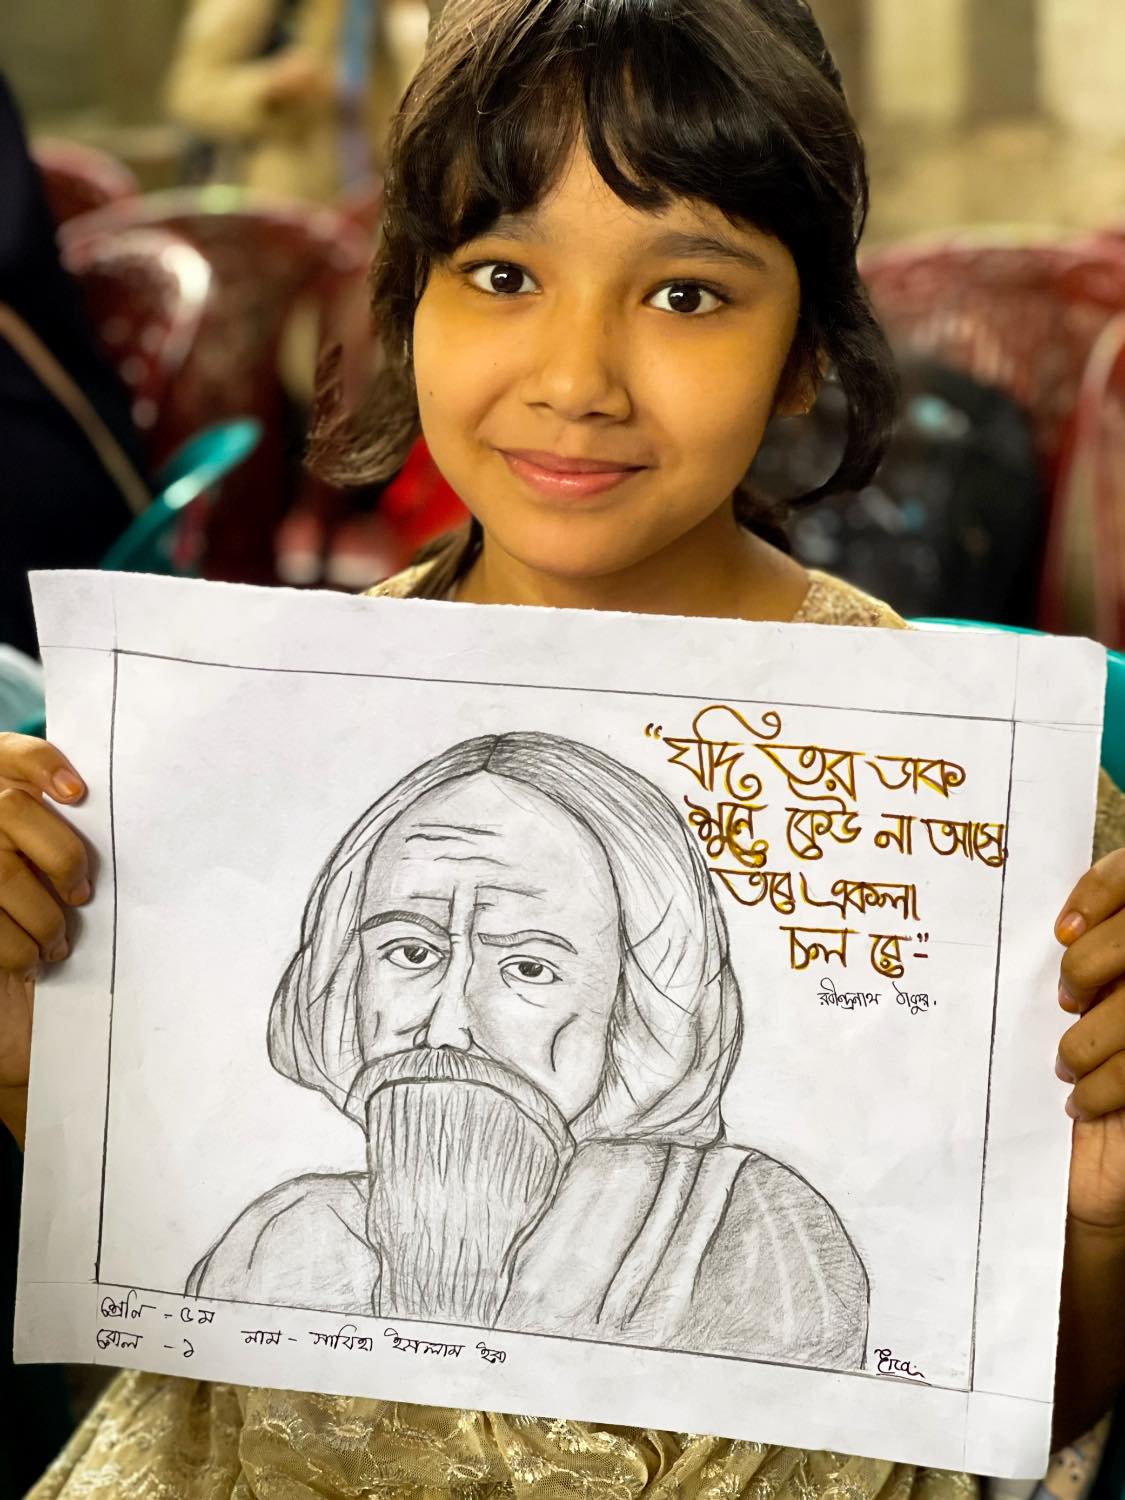 “যদি তর ডাক
শুনে কেউ না আসে
তবে একলা
চল রে”-
রবীন্দ্রনাথ ঠাকুর.
শ্রেনি - ৫ম
রোল - ১
নাম - সাবিহা ইসলাম ইরা
Eira